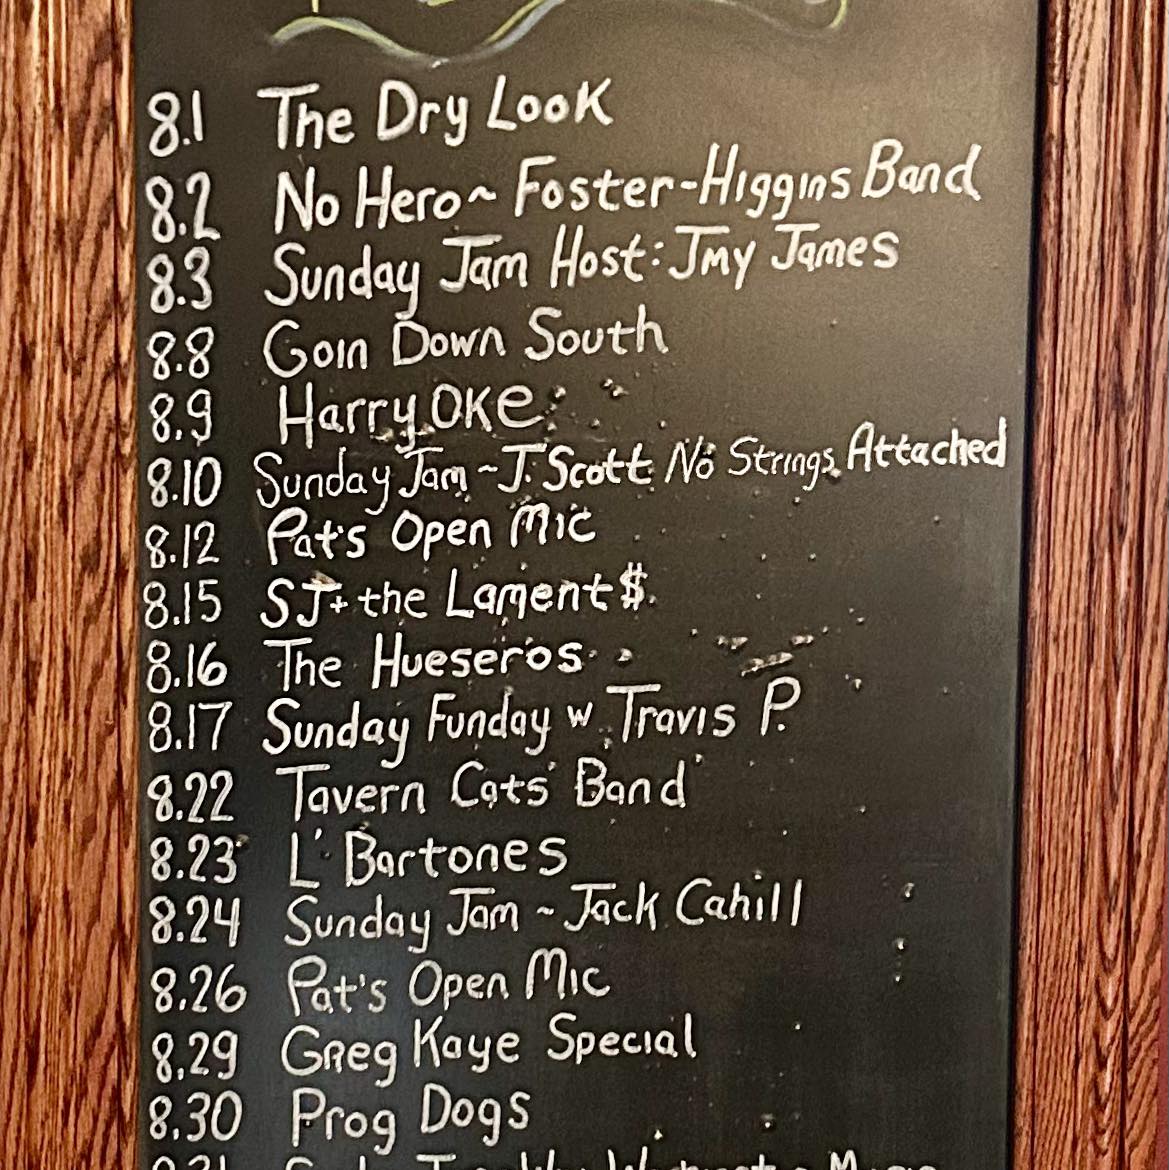 8.1 The Dry Look
8.2 No Hero~ Foster-Higgins Band
8.3 Sunday Jam Host: Jmy James
8.8 Goin Down South
8.9 Harry OKe
8.10 Sunday Jam ~ J. Scott No Strings Attached
8.12 Pat's Open Mic
8.15 SJ + the Lament$
8.16 The Hueseros
8.17 Sunday Funday w Travis P.
8.22 Tavern Cats Band
8.23 L' Bartones
8.24 Sunday Jam ~ Jack Cahill
8.26 Pat's Open Mic
8.29 Greg Kaye Special
8.30 Prog Dogs